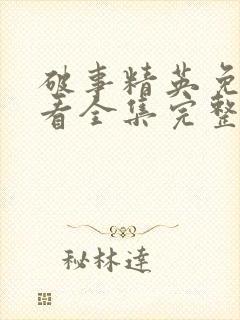 破事精英免
看全集完整
秘林達